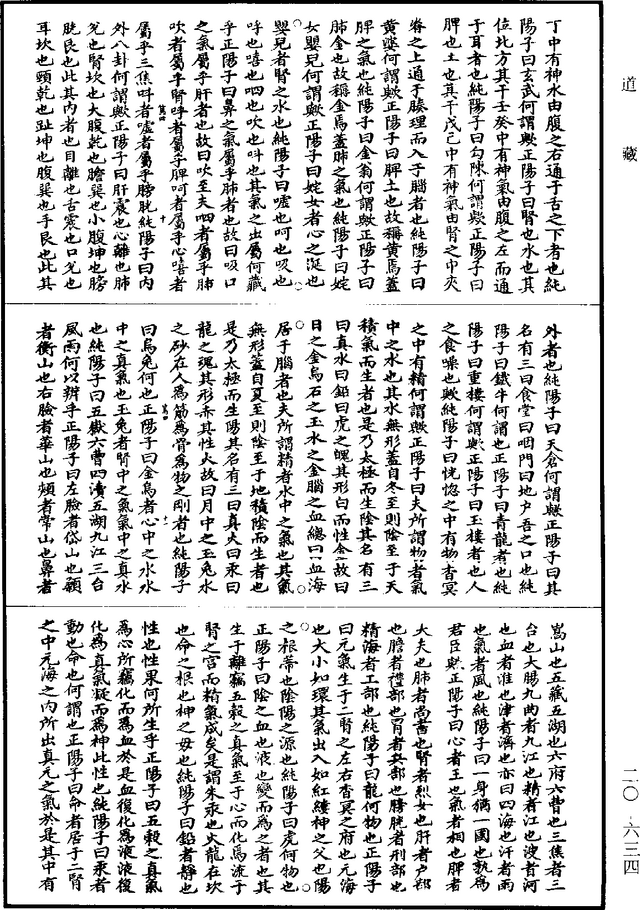 道藏
丁中有神水由腹之右通于舌之下者也純
陽子曰玄武何謂歟正陽子曰腎也水也其
位北方其干壬癸中有神氣由腹之左而通
于耳者也純陽子曰勾陳何謂歟正陽子曰
脾也土也其干戊己中有神氣由腎之中夾
脊之上通于腠理而入于腦者也純陽子曰
黃婆何謂歟正陽子曰脾土也故稱黃焉蓋
脾之氣也純陽子曰金翁何謂歟正陽子曰
肺金也故稱金焉蓋肺之氣也純陽子曰姹
女嬰兒何謂歟正陽子曰姹女者心之涎也
嬰兒者腎之水也純陽子曰噓也呵也吸也
呼也嘻也呬也吹也吽也其氣之出屬何藏
乎正陽子曰鼻之氣屬乎肺者也故曰吸口
之氣屬乎肝者也故曰吹至夫呬者屬乎肺
吹者屬乎腎呼者屬乎脾呵者屬乎心嘻者
屬乎三焦吽者噓者屬乎膀胱純陽子曰內
外八卦何謂歟正陽子曰肝震也心離也肺
兌也腎坎也大腹乾也膽巽也小腹坤也膀
胱艮也此其內者也目離也舌震也口兌也
耳坎也頭乾也趾坤也腹巽也手艮也此其
外者也純陽子曰天倉何謂歟正陽子曰其
名有三曰食堂曰咽門曰地戶吾之口也純
陽子曰鐵牛何謂也正陽子曰青龍者也純
陽子曰重樓何謂歟正陽子曰玉樓者也人
之食嗓也歟純陽子曰恍惚之中有物杳冥
之中有精何謂歟正陽子曰夫所謂物者氣
中之水也其水無形蓋自冬至則陰至于天
積氣而生者也是乃太極而生陰其名有三
曰真水曰鉛曰虎之魄其形白而性金故曰
日之金烏石之玉水之金腦之血總曰血海
居于腦者也夫所謂精者水中之氣也其氣
無形蓋自夏至則陰至于地積陰而生者也
是乃太極而生陽其名有三曰真火曰汞曰
龍之魂其形赤其性火故曰月中之玉兔水
之砂在人為筋為骨為物之剛者也純陽子
曰烏兔何也正陽子曰金烏者心中之水水
中之真氣也玉兔者腎中之氣氣中之真水
也純陽子曰五嶽六曹四瀆五湖九江三台
風雨何以辨乎正陽子曰左臉者岱山也額
者衡山也右臉者華山也頰者常山也鼻者
嵩山也五藏五湖也六府六曹也三焦者三
台也大腸九曲者九江也精者江也溲者河
也血者淮也津者濟也亦曰四海也汗者雨
也氣者風也純陽子曰一身猶一國也孰為
君臣歟正陽子曰心者王也氣者相也脾者
大夫也肺者尚書也腎者烈女也肝者戶部
也膽者禮部也胃者兵部也膀胱者刑部也
精海者工部也純陽子曰龍何物也正陽子
曰元氣生于二腎之左右杳冥之府也元海
也大小如環其氣出入如紅縷神之父也陽
之根蒂也陰陽之源也純陽子曰虎何物也
正陽子曰陰之血也液也變而為之者也其
生于離竅五穀之真氣至于心而化為液于
腎之宮而精氣成矣是謂朱汞也火龍在坎
也命之根也神之母也純陽子曰鉛者靜也
性也性果何所生乎正陽子曰五穀之真氣
為心所竊化而為血於是血復化為液液復
化為真氣凝而為神此性也純陽子曰汞者
動也命也何謂也正陽子曰命者居于二腎
之中元海之內所出真元之氣於是其中有
二〇·六三四